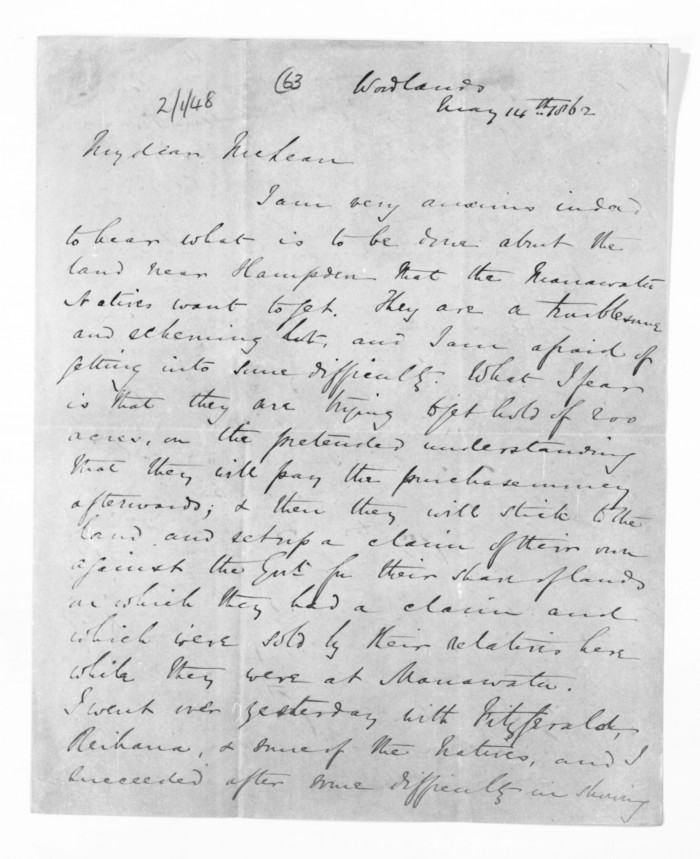 2/1/48 (63 Woodlands
May 14th. 1862
My dear McLean
I am very anxious indeed
to hear what is to be done about the
land near Hampden that the Manawatu
Natives want to get. They are a troublesome
and scheming lot, and I am afraid of
getting into some difficulty. What I fear
is that they are trying to get hold of 200
acres, on the pretended understanding
that they will pay the purchase money
afterwards; & then they will stick to the
land and set up a claim of their own
against the Govt. for their share of lands
on which they had a claim and
which were sold by their relatives here
while they were at Manawatu.
I went over yesterday with FitzGerald,
Reihana, & some of the Natives, and I
succeeded after some difficulty in showing